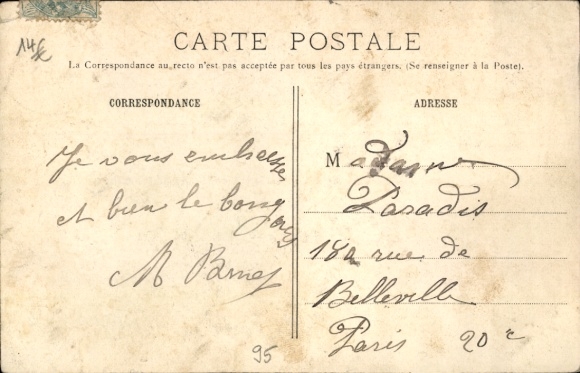 14€
CARTE POSTALE
La Correspondance au recto n'est pas acceptée par tous les pays étrangers. (Se renseigner à la Poste).
CORRESPONDANCE
ADRESSE
Je vous embrasse
et bien le bonjour
M
Madame
Paradis
rue de
Belleville
Paris 20e
95